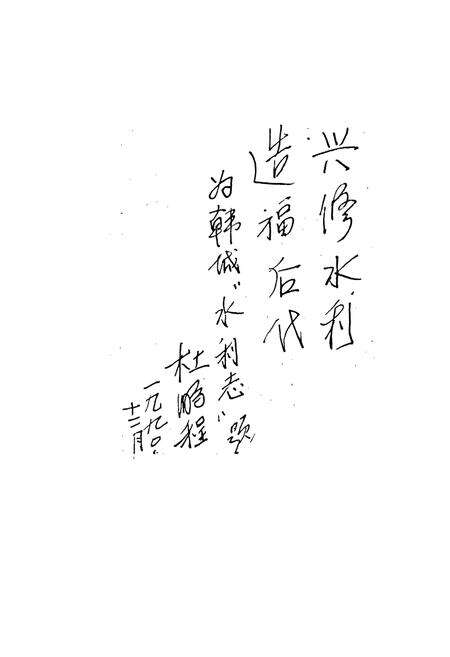 兴修水利
造福后代
为韩城“水利志”题
杜鹏程
一九九〇.
十二月